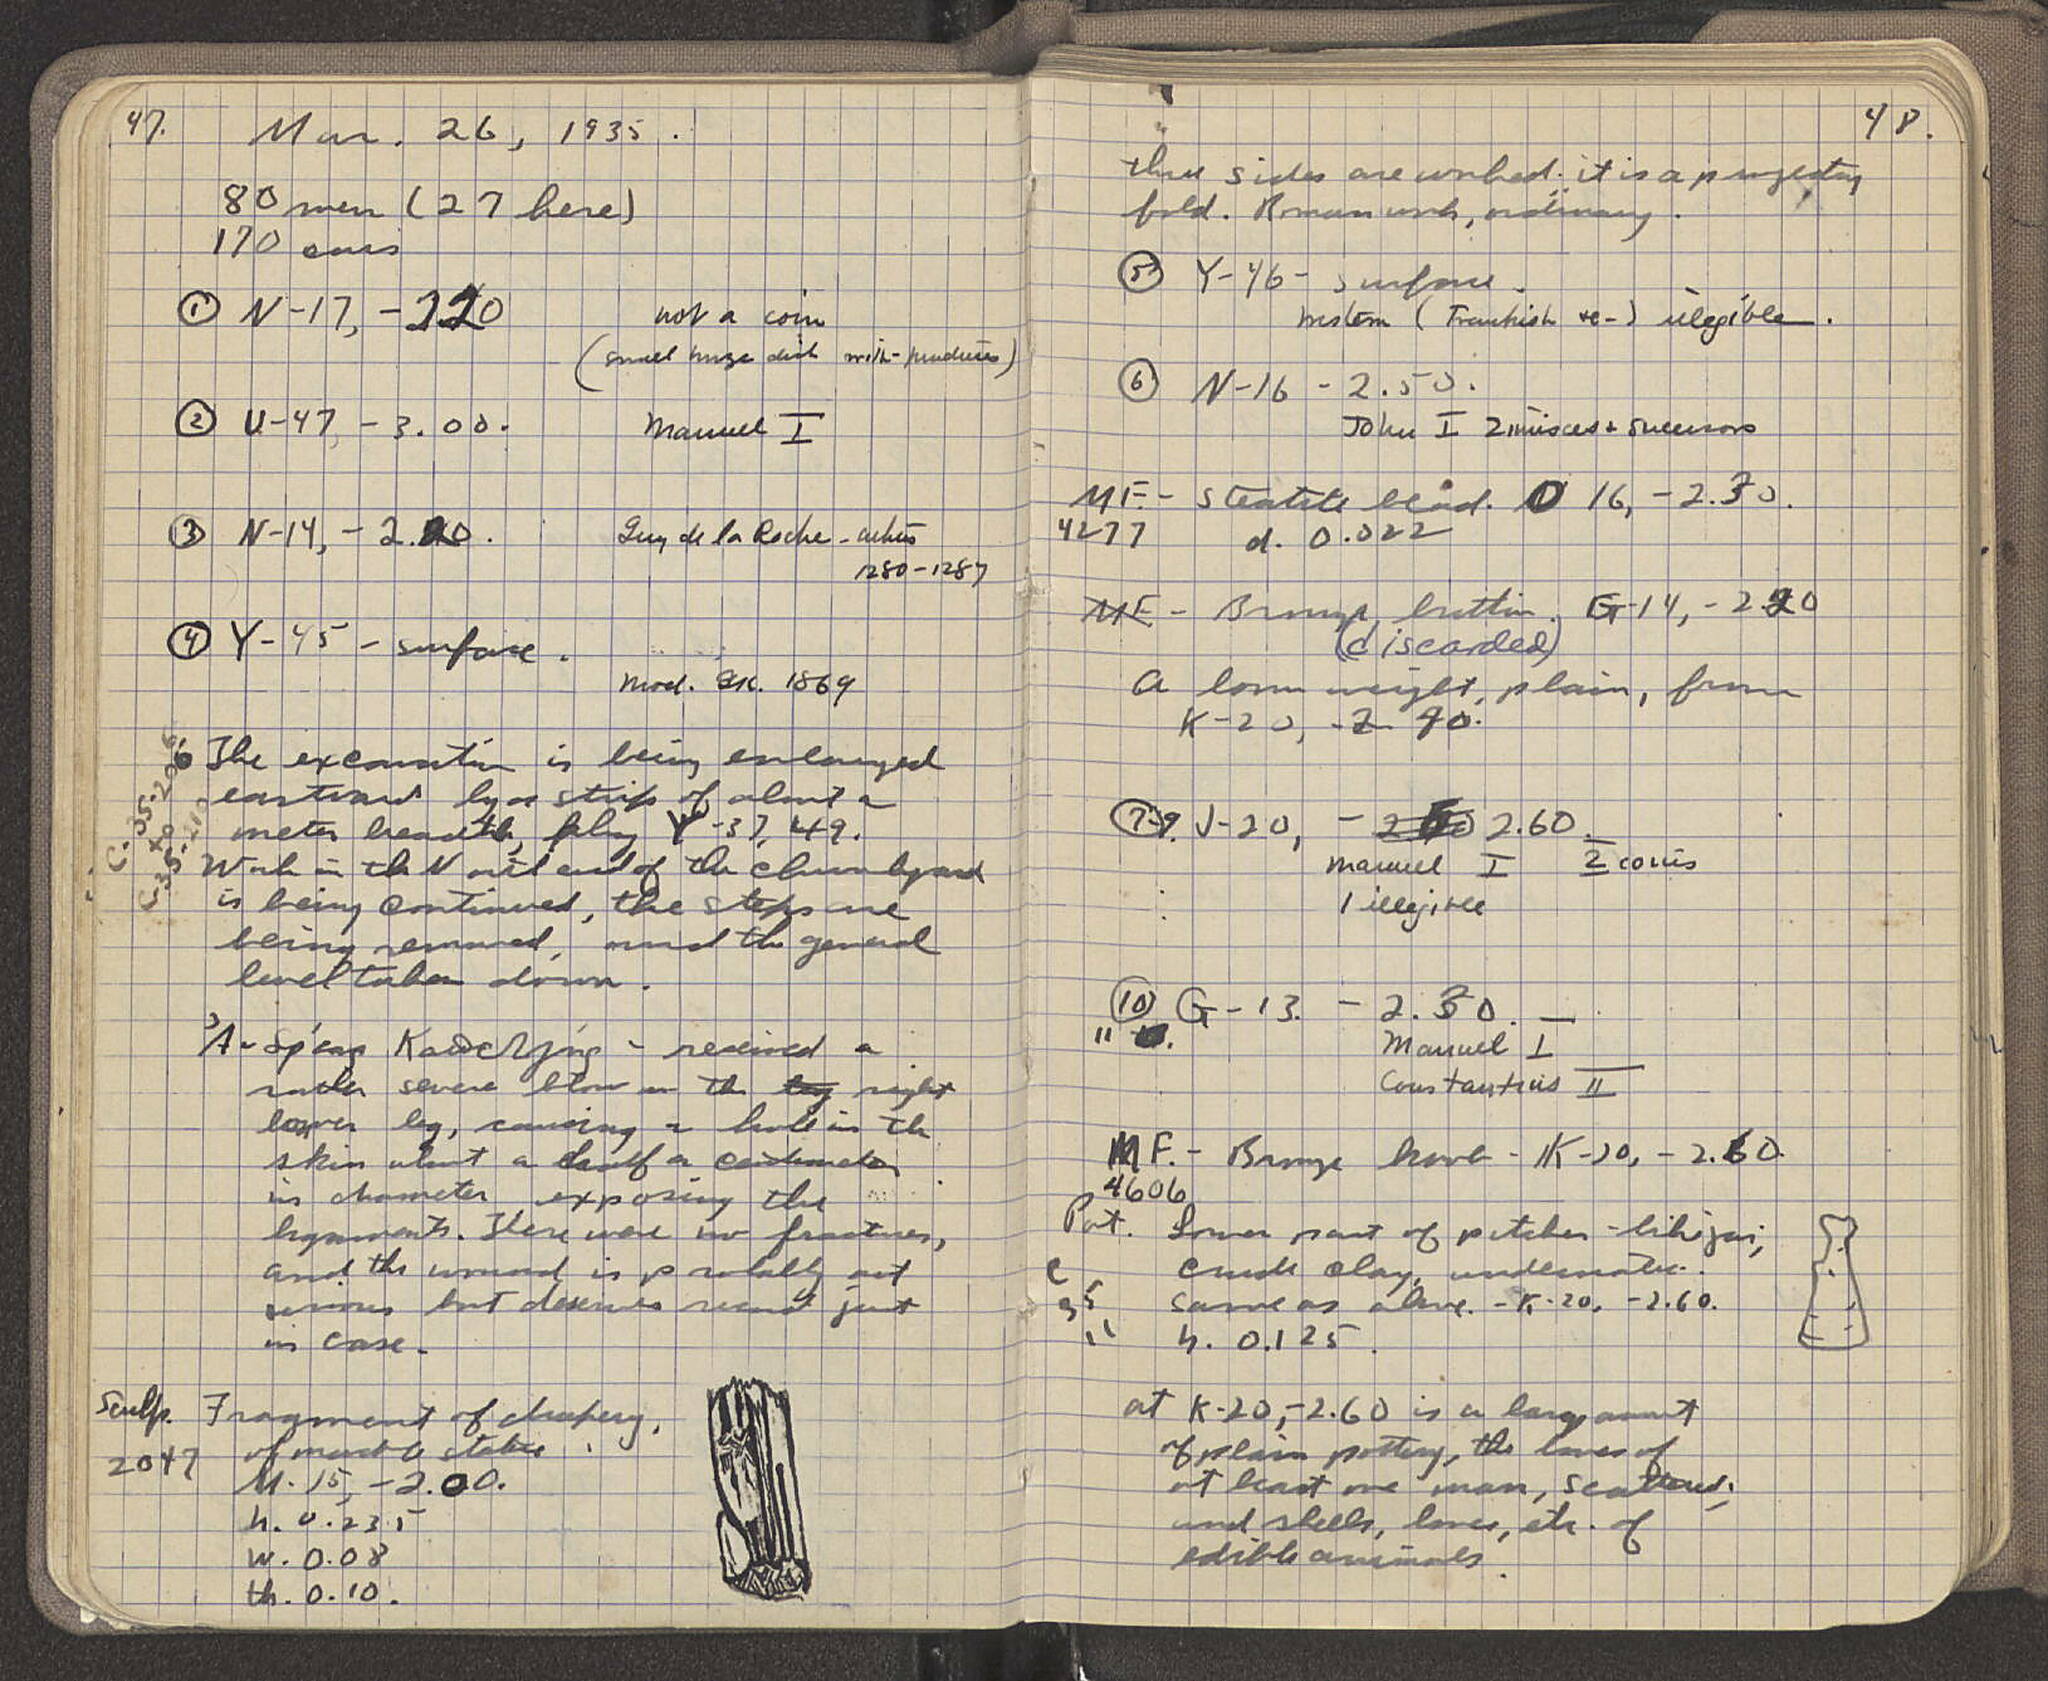 47.
Mar. 26, 1935.
80 men (27 here)
170 cars
① N-17, -2.20 not a coin
(small bronze disk with
② U-47, -3.00. Manuel I
③ N-14, -2.20. Guy de la Roche -
1280-1287
④ Y-45 - surface.
Mod. Gk. 1869
C-35-206
to
C-35-210
The excavation is being enlarged
eastward by a strip of about a
meter breadth, Y-37, 49.
Work in the North end of the churchyard
is being continued, the steps are
being removed, and the general
level taken down.
received a
rather severe blow on the leg right
lower leg, causing a hole in the
skin about a half a centimeter
in diameter exposing the
ligaments. There were no fractures,
and the wound is probably not
serious but deserves record just
in case.
Sculp. Fragment of drapery,
2047 of marble statue.
M-15, -2.00.
h. 0.235
w. 0.08
th. 0.10.
48.
three sides are worked. it is a projecting
fold. Roman work, ordinary.
⑤ Y-46 - surface.
Western (Frankish etc-) illegible.
⑥ N-16 - 2.50.
John I Zimisces + successors
MF. - Steatite bead. O 16, -2.30.
4277 d. 0.022
MF - Bronze button. G-14, -2.20
(discarded)
A loom weight, plain, from
K-20, -2.40.
7-9. J-20, - 2.60.
Manuel I 2 coins
1 illegible
⑩ G-13. - 2.30.
11 Manuel I
Constantius II
MF. - Bronze hook - K-20, -2.60.
4606
Pot. Lower part of pitcher-like jar,
C crude clay, undecorated.
35 same as above. - K-20, -2.60.
11 h. 0.125.
at K-20, -2.60 is a large amount
of plain pottery, the bones of
at least one man, scattered;
and shells, bones, etc. of
edible animals.